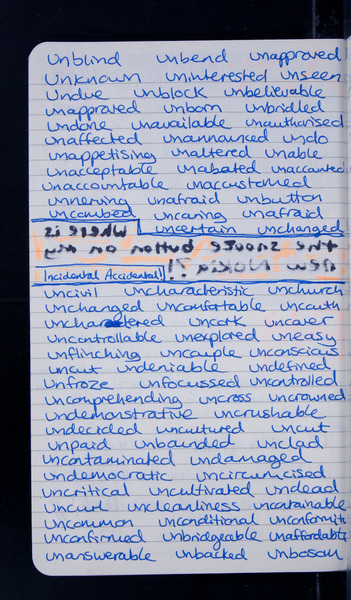 unblind unbend unapproved
unknown uninterested unseen
undue unblock unbelievable
unapproved unborn unbridled
undone unavailable unauthorised
unaffected unannounced undo
unappetising unaltered unable
unacceptable unabated unaccounted
unaccountable unaccustomed
unnerving unafraid unbutton
uncombed uncaring unafraid
uncertain unchanged
Where is
the snooze button on my
new Nokia?!
Incidental Accidental!
uncivil uncharacteristic unchurch
unchanged uncomfortable uncouth
unchartered uncork uncover
uncontrollable unexplored uneasy
unflinching uncouple unconscious
uncut undeniable undefined
unfroze unfocussed uncontrolled
uncomprehending uncross uncrowned
undemonstrative uncrushable
undecided uncultured uncut
unpaid unbounded unclad
uncontaminated undamaged
undemocratic uncircumcised
uncritical uncultivated undead
uncurl uncleanliness uncontainable
uncommon unconditional unconformity
unconfirmed unbridgeable unaffordable
unanswerable unbacked unbosom